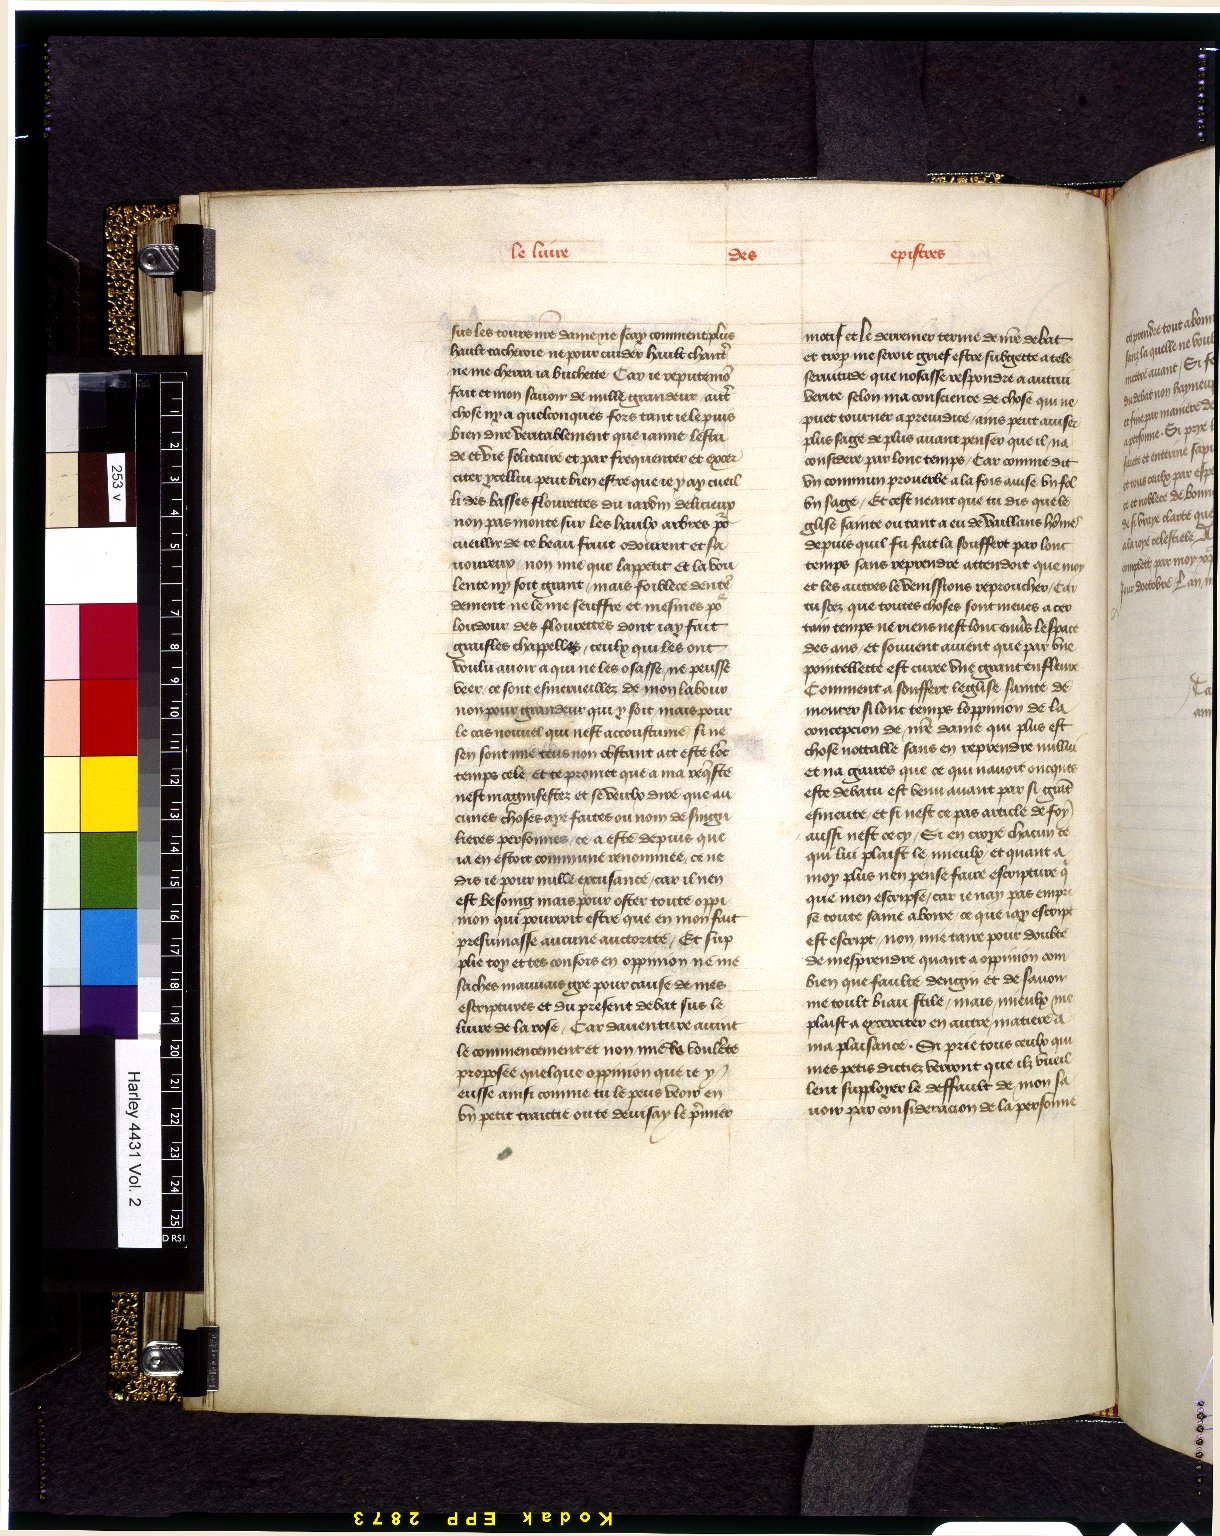 le liure des epistres
sus les tours nre dame ne scay comment plus
hault tacheroie ne pour cuider hault chant
ne me cherra ia buchette Car ie repute mo
fait et mon sauoir de nulle grandeur autre
chose ny a quelconques fors tant ie le puis
bien dire veritablement que iaime lestu
de et vie solitaire et par frequenter et exer
citer ycellui peut bien estre que ie y ay cueil
li des basses flourettes du iardin delicieux
non pas monte sur les haulx arbres po
cueillir de ce beau fruit odourent et sa
uoureux / non mie que lappetit et la vou
lente ny soit grant / mais foiblece dente
dement ne le me seuffre et mesmes po
loudour des flourettes dont iay fait
grailles chappellez / ceulx qui les ont
voulu auoir a qui ne les osasse ne peusse
veer ce sont esmerueillez de mon labour
non pour grandeur qui y soit mais pour
le cas nouuel qui nest accoustume si ne
sen sont mie teus non obstant ait este loc
temps cele et te promet que a ma reqste
nest magnifestez et se veulx dire que au
cunes choses aye faites ou nom de singu
lieres personnes / ce a este depuis que
ia en estoit commune renommee / ce ne
dis ie pour nulle excusance / car il nen
est besoing mais pour oster toute oppi
nion qui pourroit estre que en mon fait
presumasse aucune auctorite / Et sup
plie toy et tes consors en oppinion ne me
saches mauuais gre pour cause de mes
escriptures et du present debat sus le
liure de la rose / Car dauenture auint
le commencement et non mie voulete
proposee quelque oppinion que ie y
eusse ainsi comme tu le peus veoir en
vn petit traictie ou te deuisay le pmier
motif et le derrenier terme de nre debat
et trop me seroit grief estre subgette a tele
seruitude que nosasse respondre a autrui
verite selon ma conscience de chose qui ne
puet tourner a preiudice / ains peut auiser
plus sage de plus auant penser que il na
considere par lonc temps / Car comme dit
vn commun prouerbe a la fois auise vn fol
vn sage / Et cest neant que tu dis que le
glise sainte ou tant a eu de vaillans home
depuis quil fu fait la souffert par lonc
temps sans reprendre attendoit que moy
et les autres le venissions reproucher / Car
tu scez que toutes choses sont meues a cer
tain temps ne riens nest lonc enuers lespace
des ans / et souuent auient que par vne
pointellette est curee vne grant enfleure
Comment a souffert leglise sainte de
mourer si lonc temps loppinion de la
concepcion de nre dame qui plus est
chose nottable sans en reprendre nullui
et na gaires que ce qui nauoit oncques
este debatu est venu auant par si grat
esmeute / et si nest ce pas article de foy
aussi nest ce cy / Si en croye chacun ce
qui lui plaist le mieulx / et quant a
moy plus nen pense faire escripture q
que men escripse / car ie nay pas empri
se toute saine a boire / ce que iay escript
est escript / non mie taire pour doubte
de mesprendre quant a oppinion com
bien que faulte dengin et de sauoir
me toult biau stile / mais mieulx me
plaist a excerciter en autre matiere a
ma plaisance . Si prie tous ceulx qui
mes petis dictiez verront que ilz vueil
lent supployer le deffault de mon sa
uoir par consideracion de la personne
253 v
Harley 4431 Vol. 2
Kodak EPP 2873